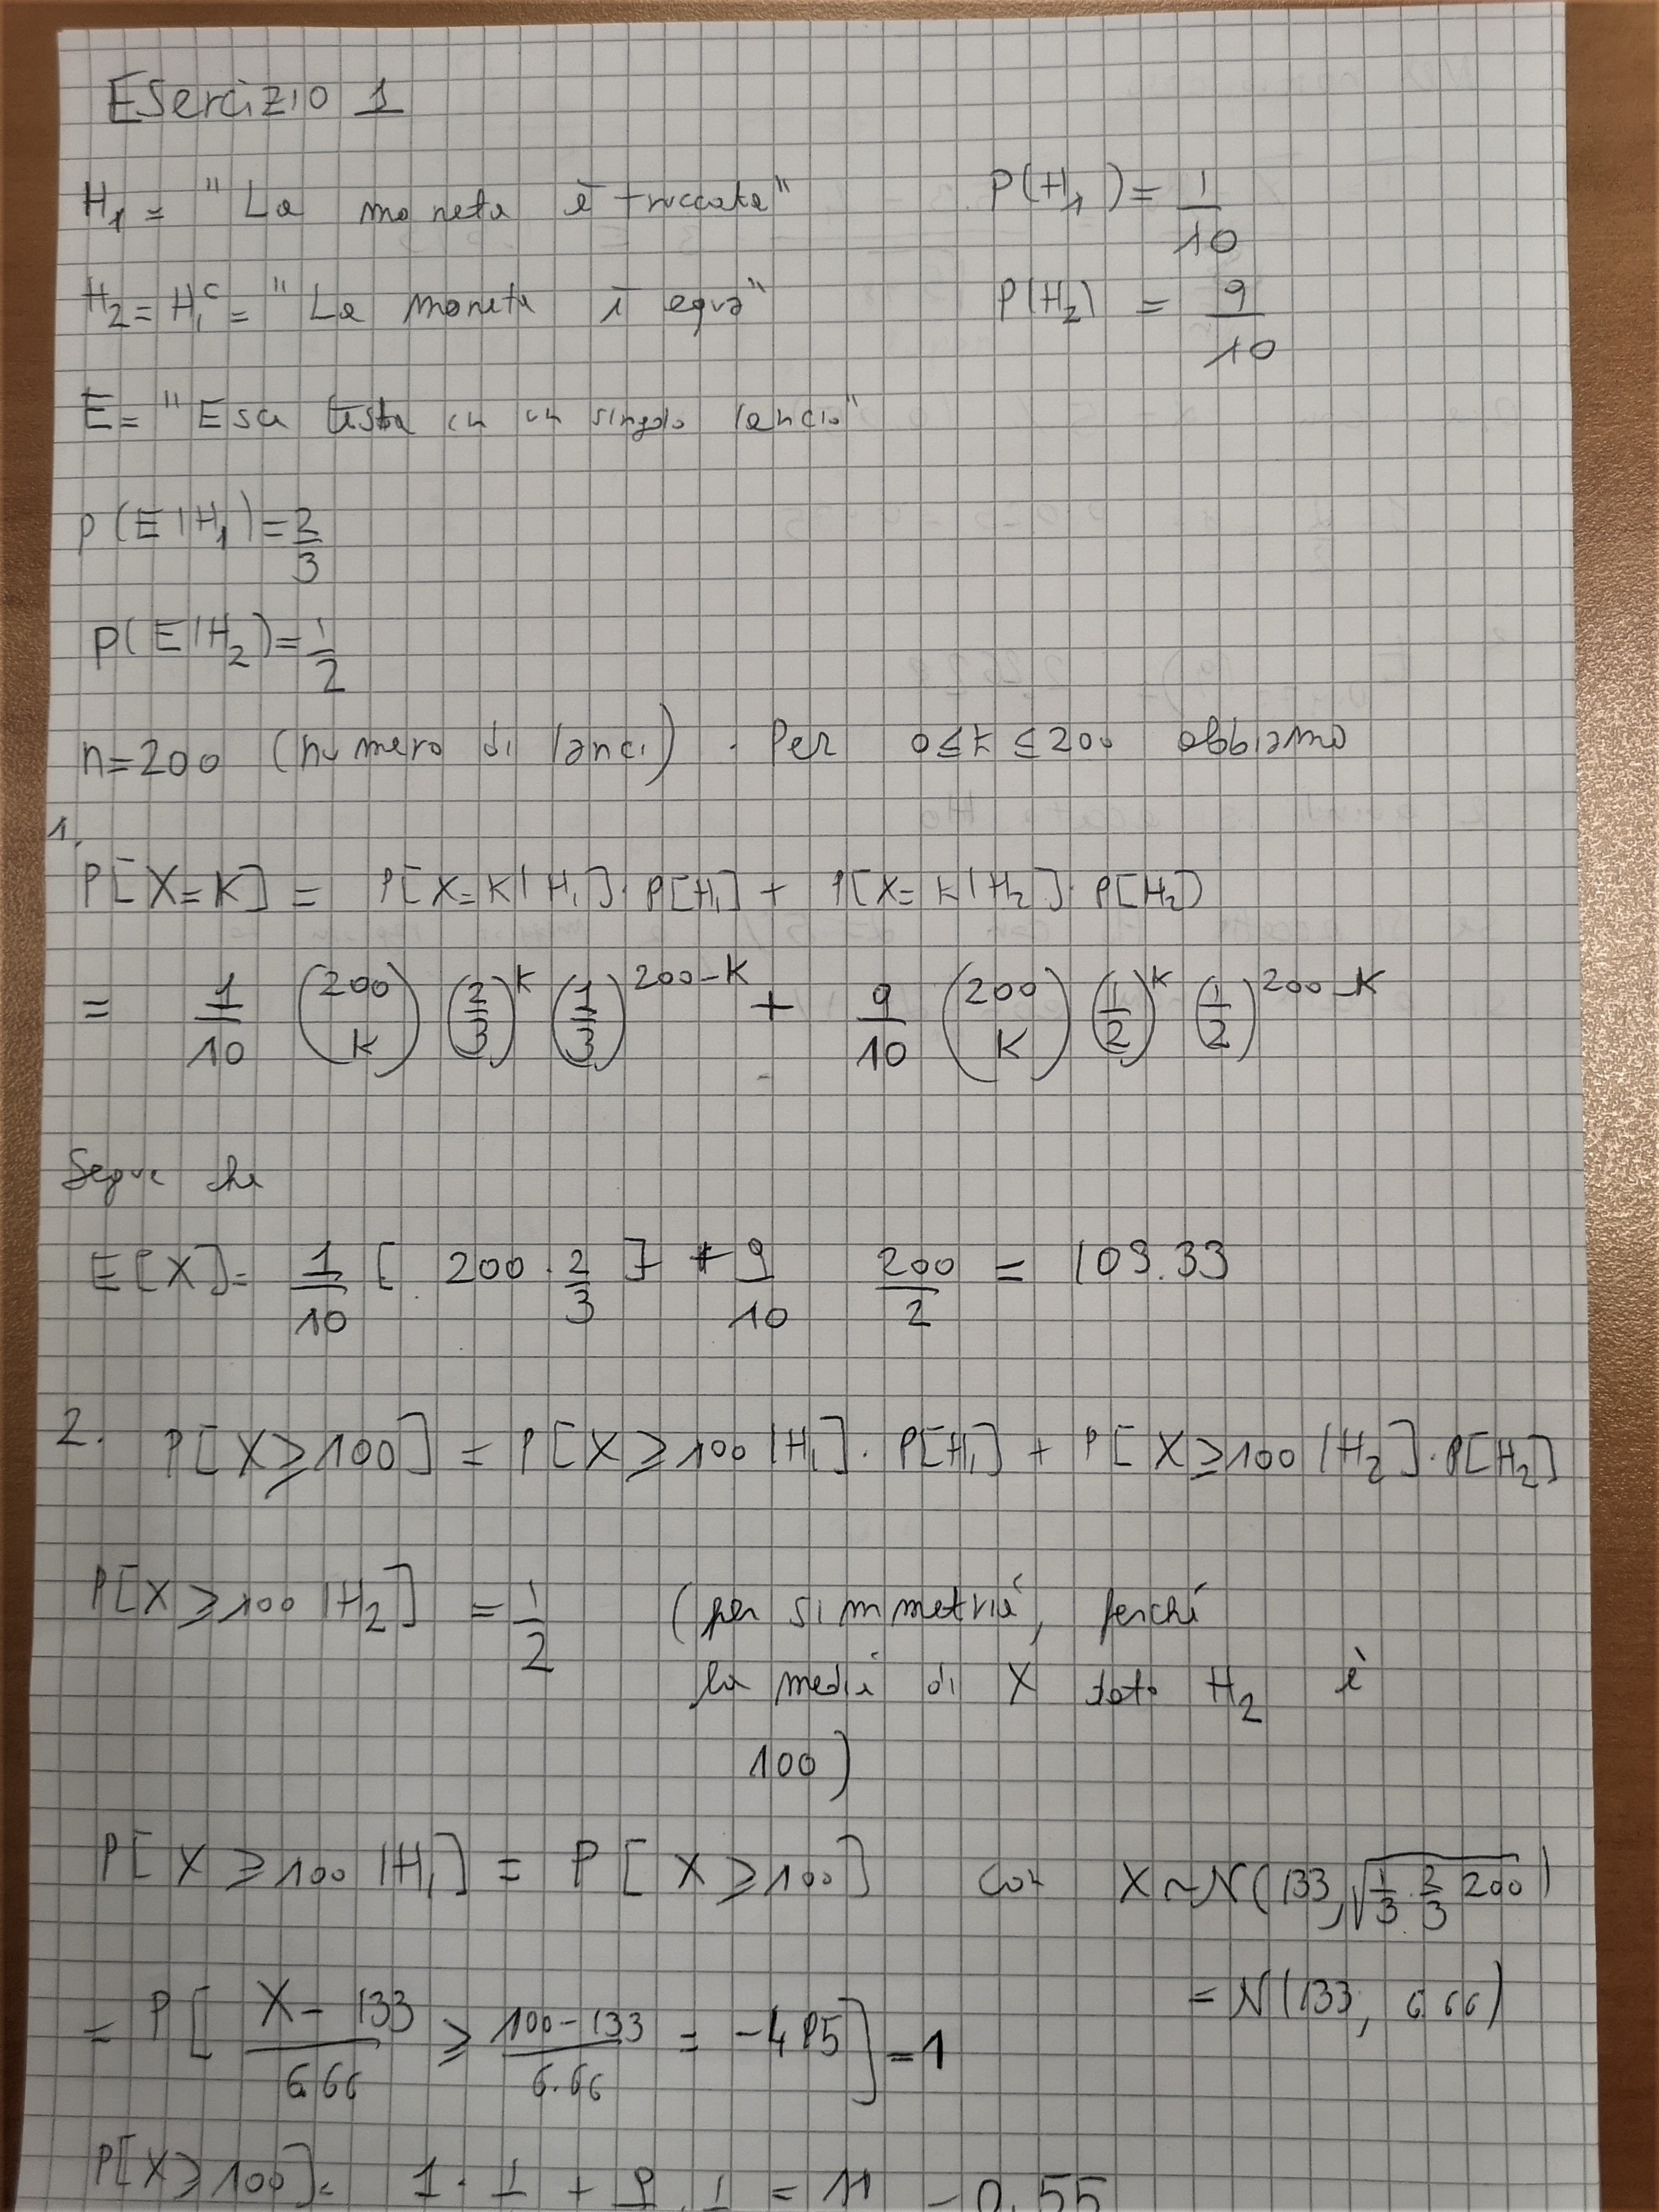 Esercizio 1
H₁ = "La moneta è truccata" P(H₁) = 1/10
H₂ = H₁ᶜ = "La moneta è equa" P(H₂) = 9/10
E = "Esca testa in un singolo lancio"
P(E|H₁) = 2/3
P(E|H₂) = 1/2
n = 200 (numero di lanci). Per 0 ≤ k ≤ 200 abbiamo
1.
P[X=K] = P[X=K|H₁]·P[H₁] + P[X=K|H₂]·P[H₂]
= 1/10 (200 K) (2/3)^K (1/3)^(200-K) + 9/10 (200 K) (1/2)^K (1/2)^(200-K)
Segue che
E[X] = 1/10 [200 · 2/3] + 9/10 200/2 = 103.33
2. P[X ≥ 100] = P[X ≥ 100|H₁]·P[H₁] + P[X ≥ 100|H₂]·P[H₂]
P[X ≥ 100|H₂] = 1/2 (per simmetria, perché
la media di X sotto H₂ è
100)
P[X ≥ 100|H₁] = P[X ≥ 100] con X ~ N(133, √(1/3 · 2/3 200))
= N(133, 6.66)
= P[(X - 133)/6.66 ≥ (100 - 133)/6.66 = -4.95] = 1
P[X ≥ 100] = 1 · 1 + 9 · 1 = 11 = 0,55